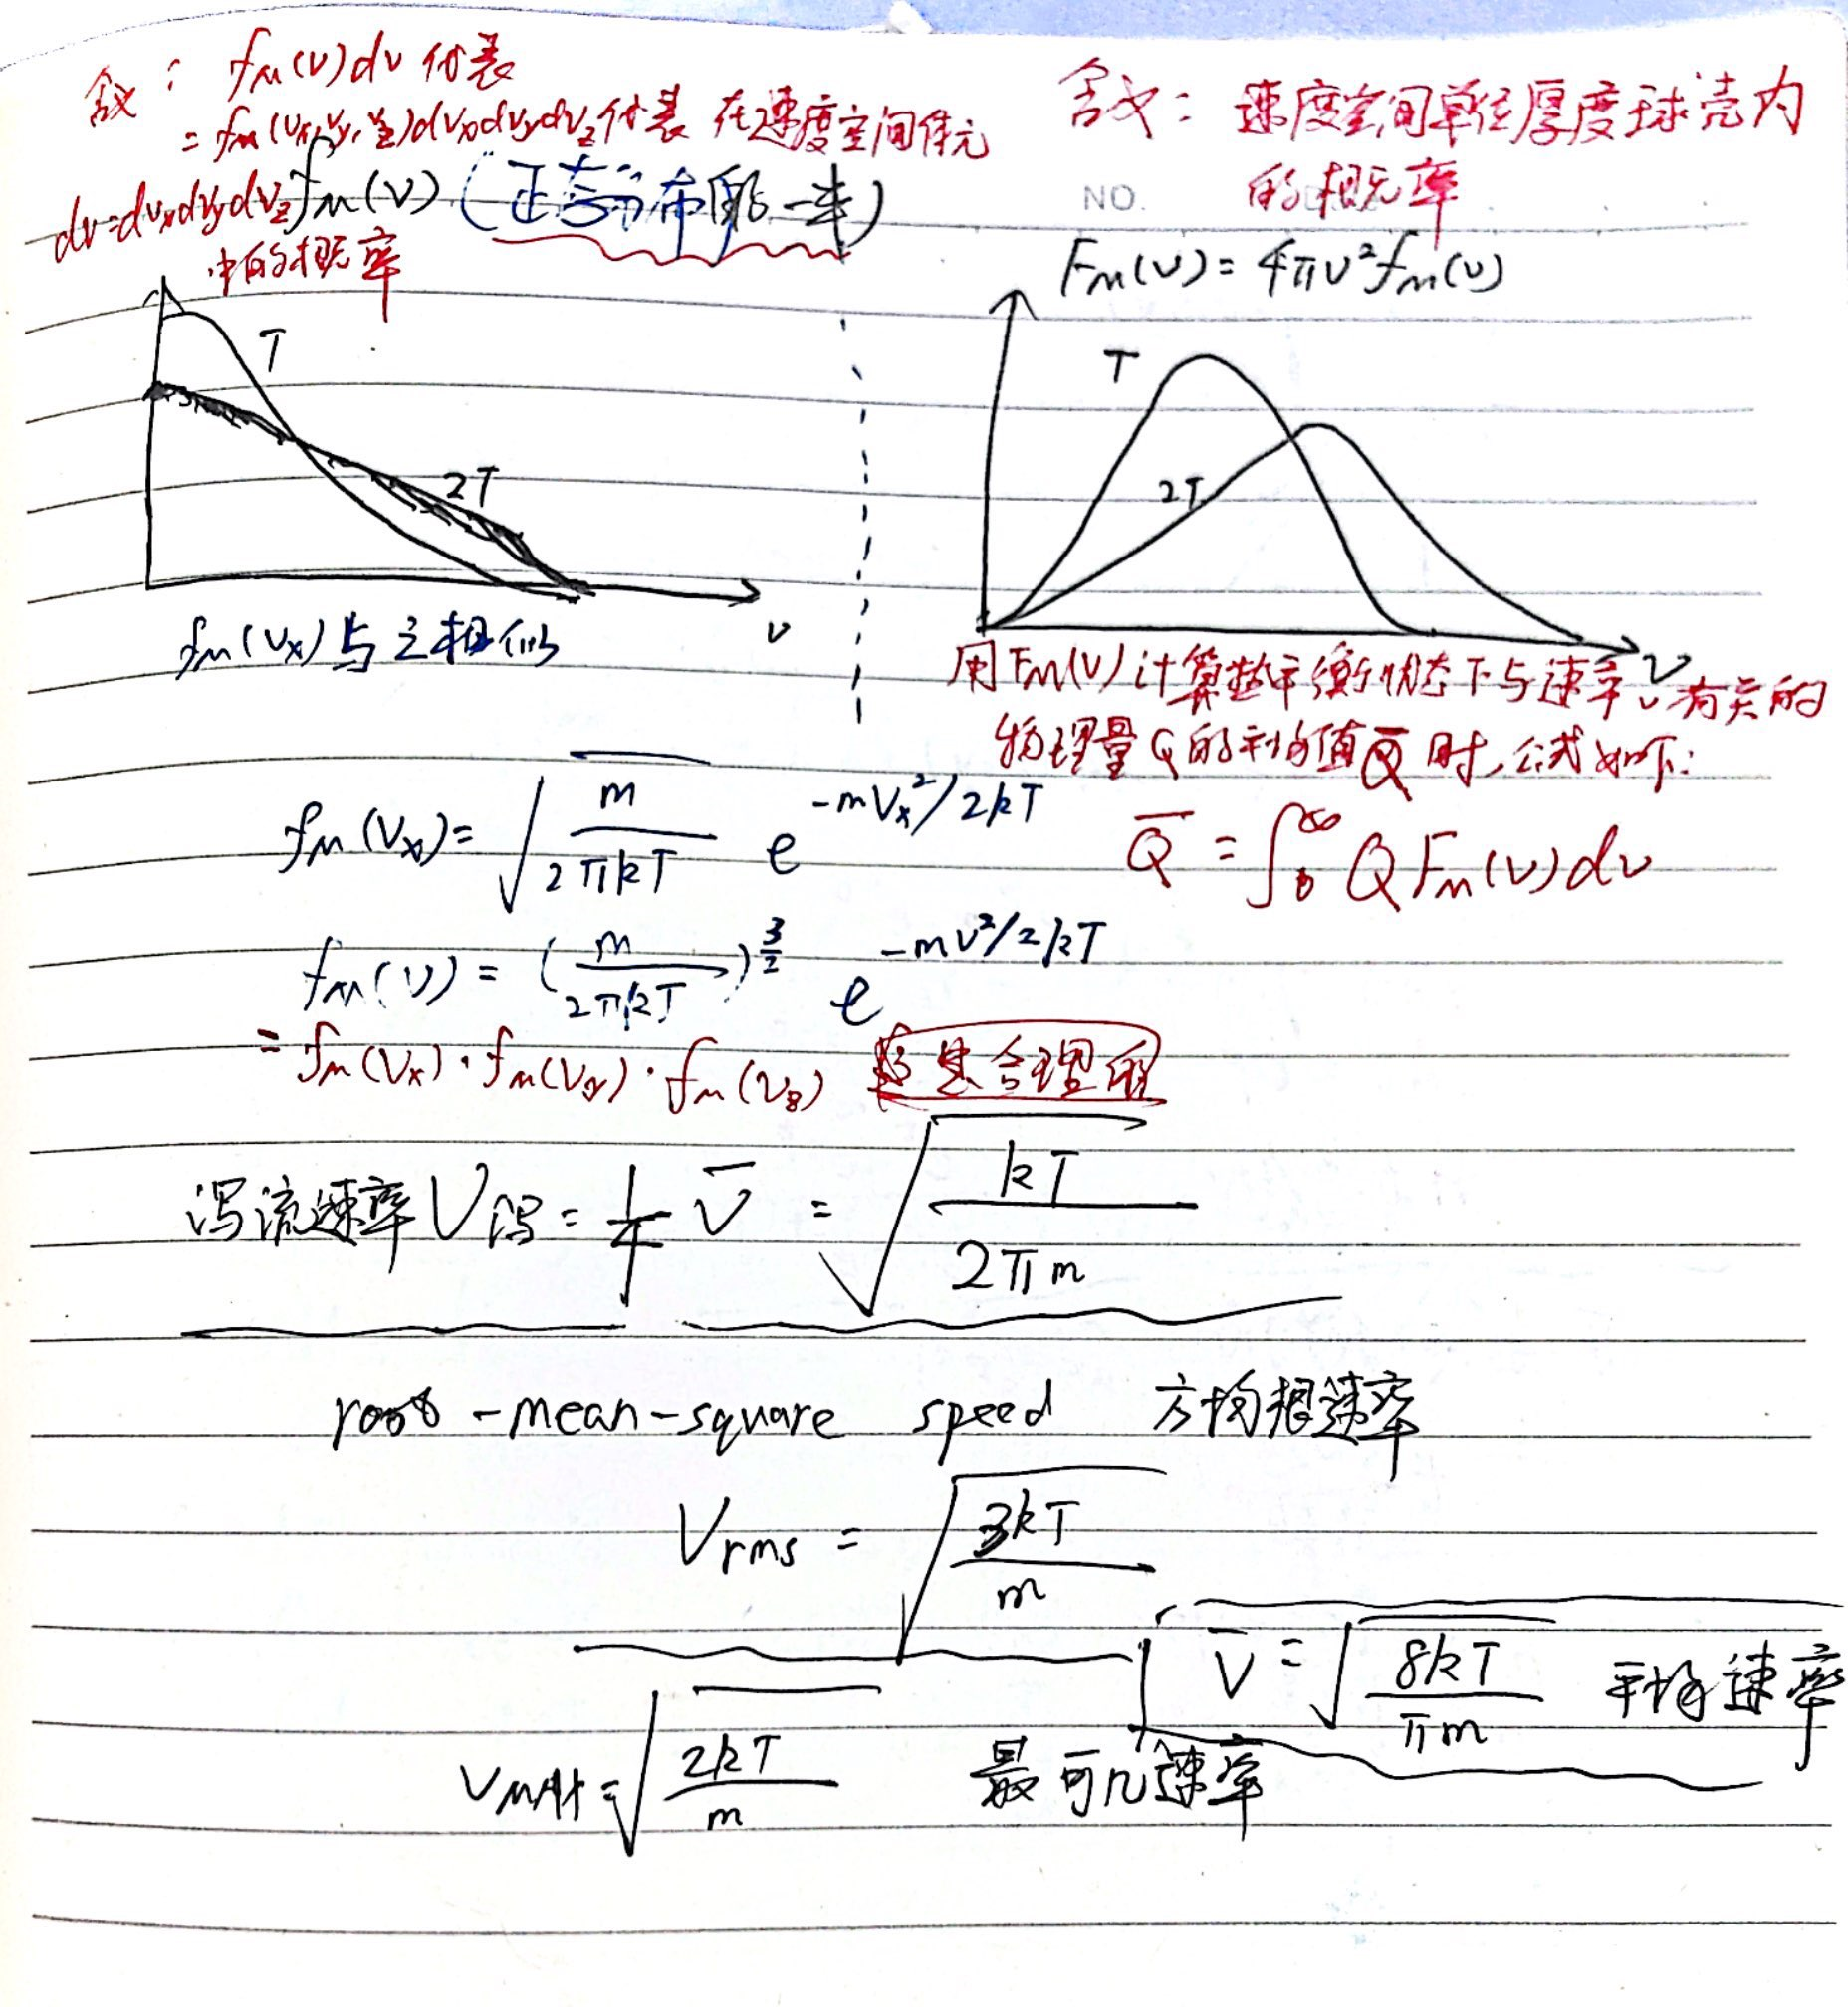 含义： fm(v)dv 代表
= fm(vx,vy,vz)dvxdvydvz代表 在速度空间体元
dv=dvxdvydvz
中的概率
fm(v) (正态分布的一半)
T
2T
v
fm(vx) 与之相似
含义： 速度空间单位厚度球壳内
的概率
NO.
Fm(v) = 4πv²fm(v)
T
2T
v
用Fm(v)计算热平衡状态下与速率v有关的
物理量Q的平均值Q̄ 时，公式如下：
Q̄ = ∫₀^∞ Q Fm(v)dv
fm(vx) = √(m/2πkT) e^(-mvx²/2kT)
fm(v) = (m/2πkT)^(3/2) e^(-mv²/2kT)
= fm(vx)·fm(vy)·fm(vz) 是合理的
泻流速率 V泻 = 1/4 v̄ = √(kT/2πm)
root-mean-square speed 方均根速率
Vrms = √(3kT/m)
v̄ = √(8kT/πm) 平均速率
= √(2kT/m) 最可几速率